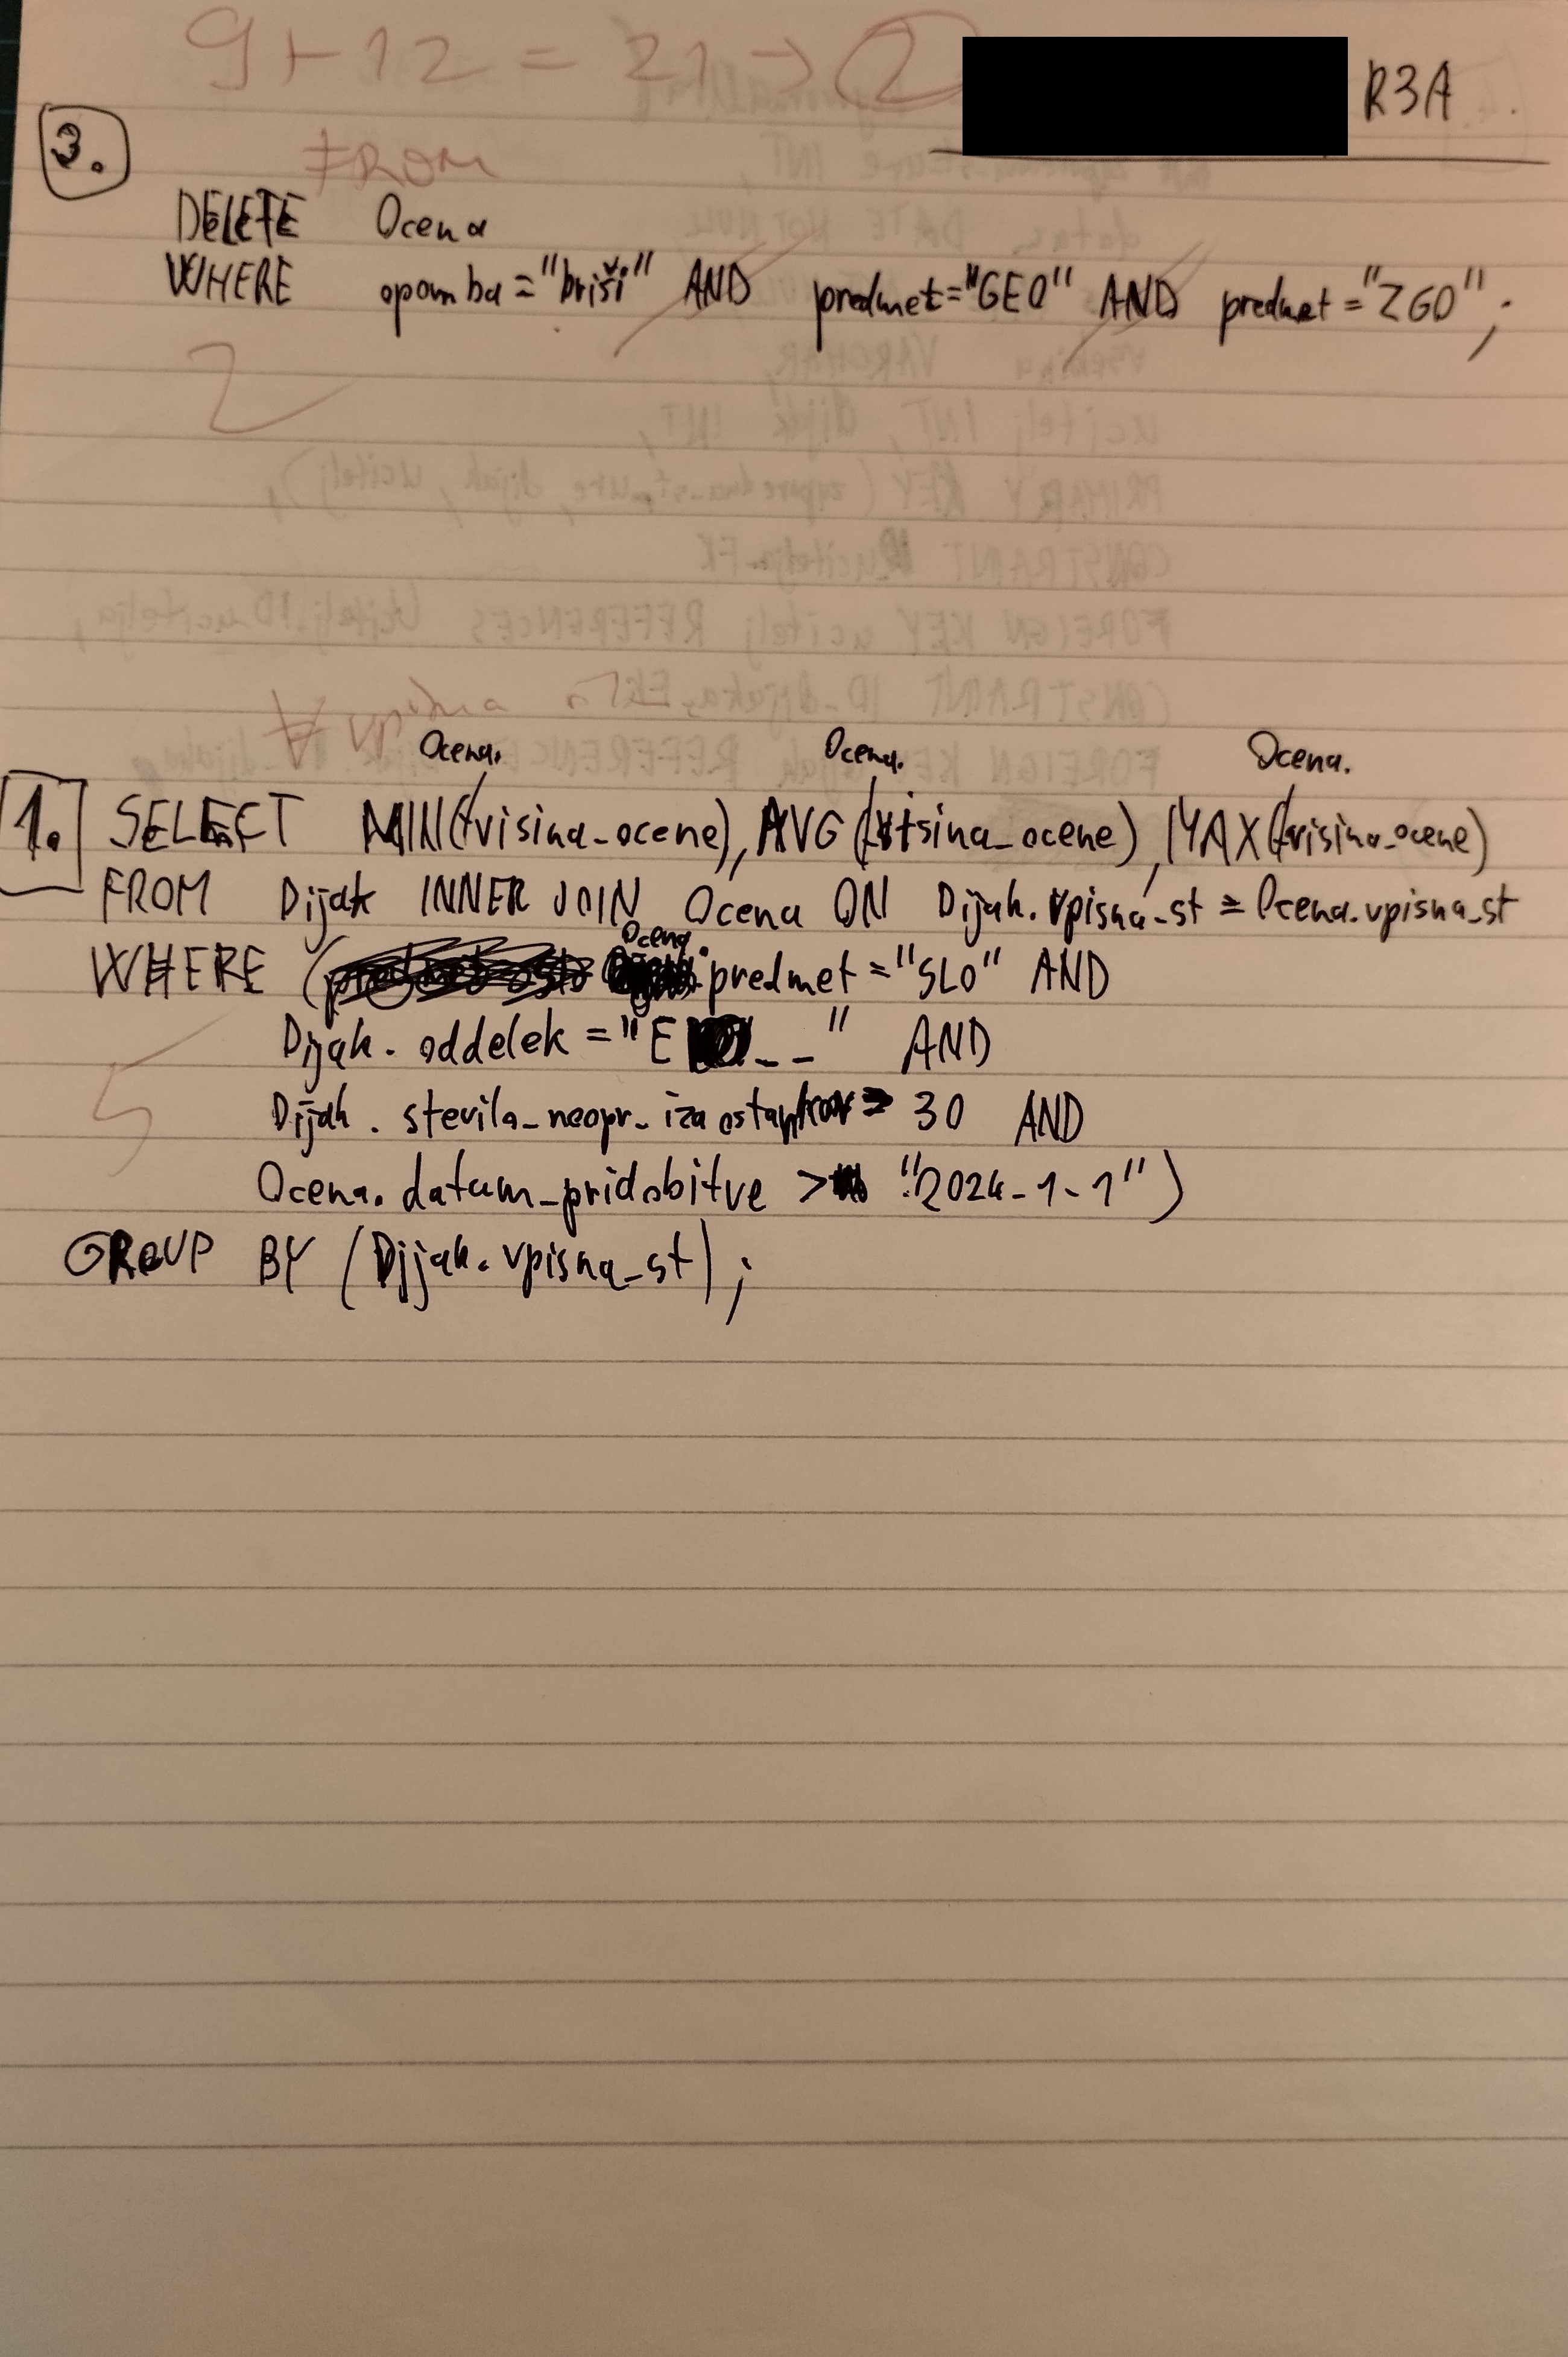 9+12=21→2
R3A
3.
FROM
DELETE Ocena
WHERE opomba="briši" AND predmet="GEO" AND predmet="ZGO";
2
∀ vpisna
Ocena. Ocena. Ocena.
1. SELECT MIN(visina_ocene), AVG(visina_ocene), MAX(visina_ocene)
FROM Dijak INNER JOIN Ocena ON Dijak.vpisna_st = Ocena.vpisna_st
Ocena.
WHERE ( predmet="SLO" AND
Dijak.oddelek="E__" AND
Dijak.stevilo_neopr_izostankov > 30 AND
5
Ocena.datum_pridobitve > "2024-1-1")
GROUP BY (Dijak.vpisna_st);